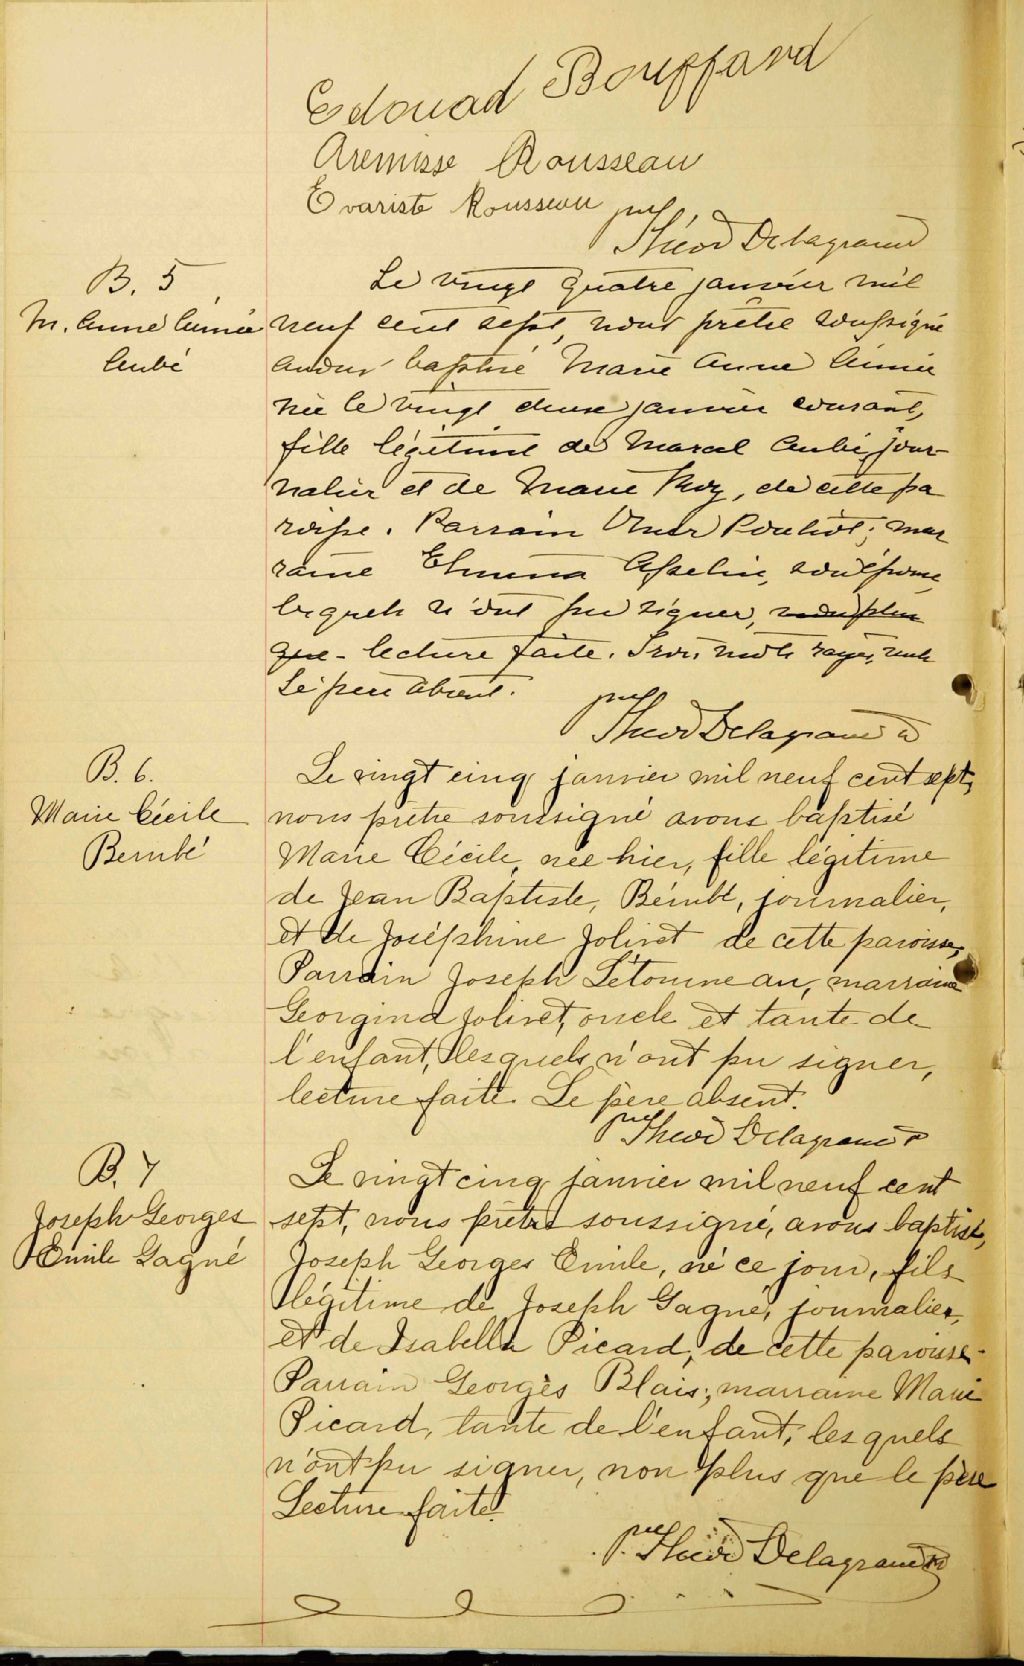 Edouad Bouffard
Aremisse Rousseau
Evariste Rousseau
Ptre
Théod Delagrave
B. 5
M. Anne Aimée
Aubé
Le vingt quatre janvier mil
neuf cent sept, nous prêtre soussigné
avons baptisé Marie Anne Aimée
née le vingt deux janvier courant,
fille légitime de Marcel Aubé, jour-
nalier et de Marie Roy, de cette pa
roisse. Parrain Omer Pouliot; mar
raine Asselin,
lesquels n'ont pu signer, non plus
que - lecture faite. Trois mots rayés nuls
Le père absent.
Ptre
Théod Delagrave
B. 6.
Marie Cécile
Berubé
Le vingt cinq janvier mil neuf cent sept,
nous prêtre soussigné avons baptisé
Marie Cécile, née hier, fille légitime
de Jean Baptiste, Bérubé, journalier,
et de Joséphine Jolivet de cette paroisse,
Parrain Joseph Létourneau, marraine
Georgina Jolivet, oncle et tante de
l'enfant, lesquels n'ont pu signer,
lecture faite. Le père absent.
Ptre Théod Delagrave
B. 7
Joseph Georges
Emile Gagné
Le vingt cinq janvier mil neuf cent
sept, nous prêtre soussigné, avons baptisé,
Joseph Georges Emile, né ce jour, fils
légitime de Joseph Gagné, journalier,
et de Isabella Picard, de cette paroisse.
Parrain Georges Blais; marraine Marie
Picard, tante de l'enfant, lesquels
n'ont pu signer, non plus que le père
Lecture faite.
Ptre Théod Delagrave